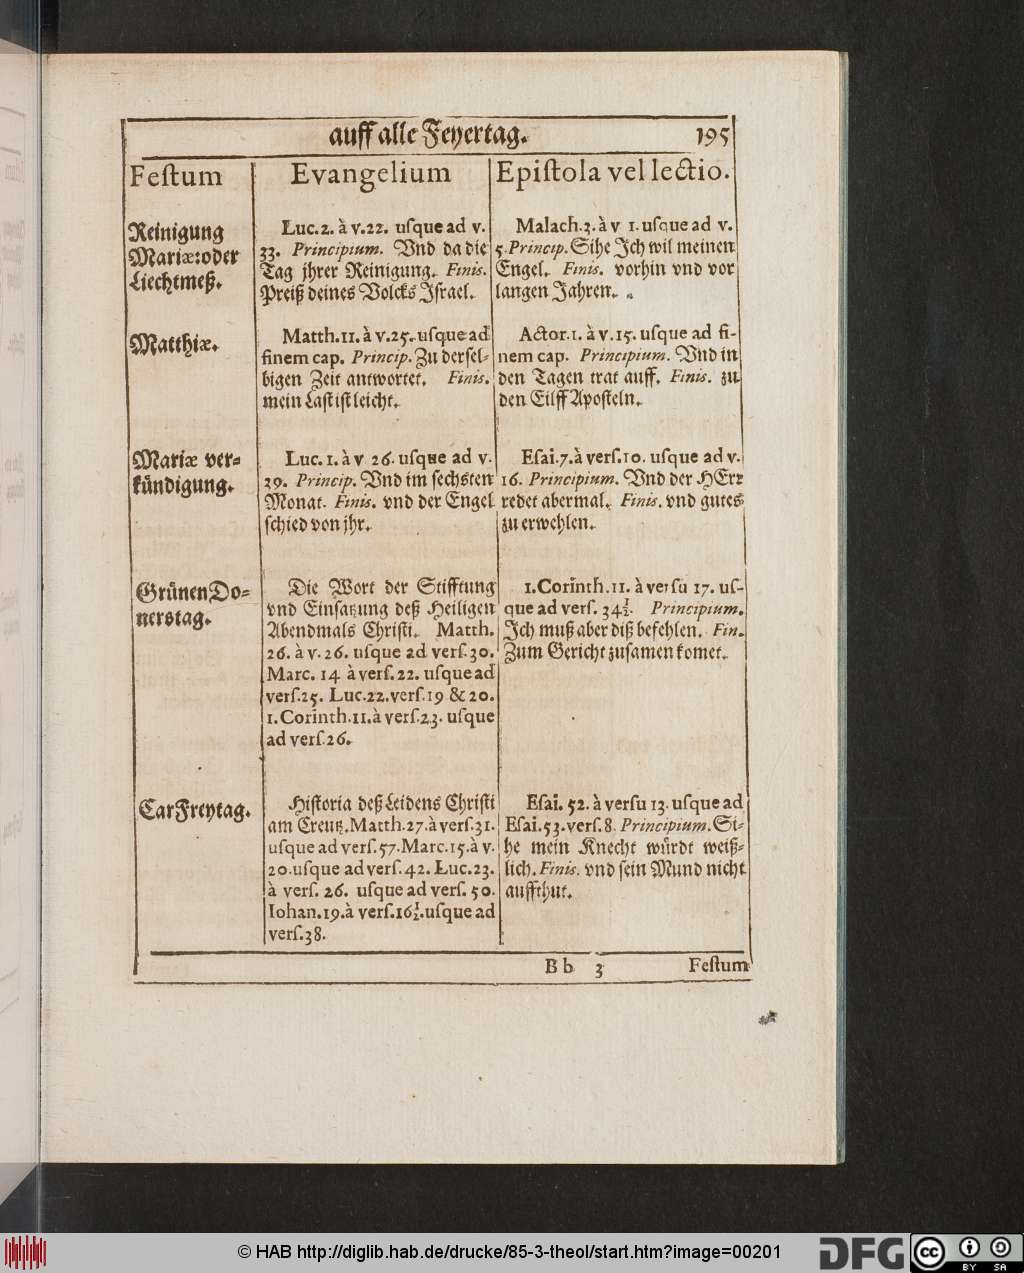 auff alle Feyertag. 195
Feſtum
Evangelium
Epiſtola vel lectio.
Reinigung
Mariæ: oder
Liechtmeß.
Luc. 2. à v. 22. uſque ad v.
33. Principium. Vnd da die
Tag jhrer Reinigung. Finis.
Preiß deines Volcks Iſrael.
Malach. 3. à v 1. uſque ad v.
5. Princip. Sihe Ich wil meinen
Engel. Finis. vorhin vnd vor
langen Jahren.
Matthiæ.
Matth. 11. à v. 25. uſque ad
finem cap. Princip. Zu derſel-
bigen Zeit antwortet. Finis.
mein Laſt iſt leicht.
Actor. 1. à v. 15. uſque ad fi-
nem cap. Principium. Vnd in
den Tagen trat auff. Finis. zu
den Eilff Apoſteln.
Mariæ ver-
kündigung.
Luc. 1. à v 26. uſque ad v.
39. Princip. Vnd im ſechſten
Monat. Finis. vnd der Engel
ſchied von jhr.
Eſai. 7. à verſ. 10. uſque ad v.
16. Principium. Vnd der HErr
redet abermal. Finis. vnd gutes
zu erwehlen.
Grünen Do-
nerstag.
Die Wort der Stifftung
vnd Einſatzung deß Heiligen
Abendmals Chriſti. Matth.
26. à v. 26. uſque ad verſ. 30.
Marc. 14 à verſ. 22. uſque ad
verſ. 25. Luc. 22. verſ. 19 & 20.
1. Corinth. 11. à verſ. 23. uſque
ad verſ. 26.
1. Corinth. 11. à verſu 17. uſ-
que ad verſ. 34½. Principium.
Ich muß aber diß befehlen. Fin.
Zum Gericht zuſamen komet.
Car Freytag.
Hiſtoria deß Leidens Chriſti
am Creutz. Matth. 27. à verſ. 31.
uſque ad verſ. 57. Marc. 15. à v.
20. uſque ad verſ. 42. Luc. 23.
à verſ. 26. uſque ad verſ. 50.
Iohan. 19. à verſ. 16½. uſque ad
verſ. 38.
Eſai. 52. à verſu 13. uſque ad
Eſai. 53. verſ. 8. Principium. Si-
he mein Knecht würdt weiß-
lich. Finis. vnd ſein Mund nicht
auffthut.
B b 3 Feſtum
© HAB http://diglib.hab.de/drucke/85-3-theol/start.htm?image=00201
DFG
cc BY SA